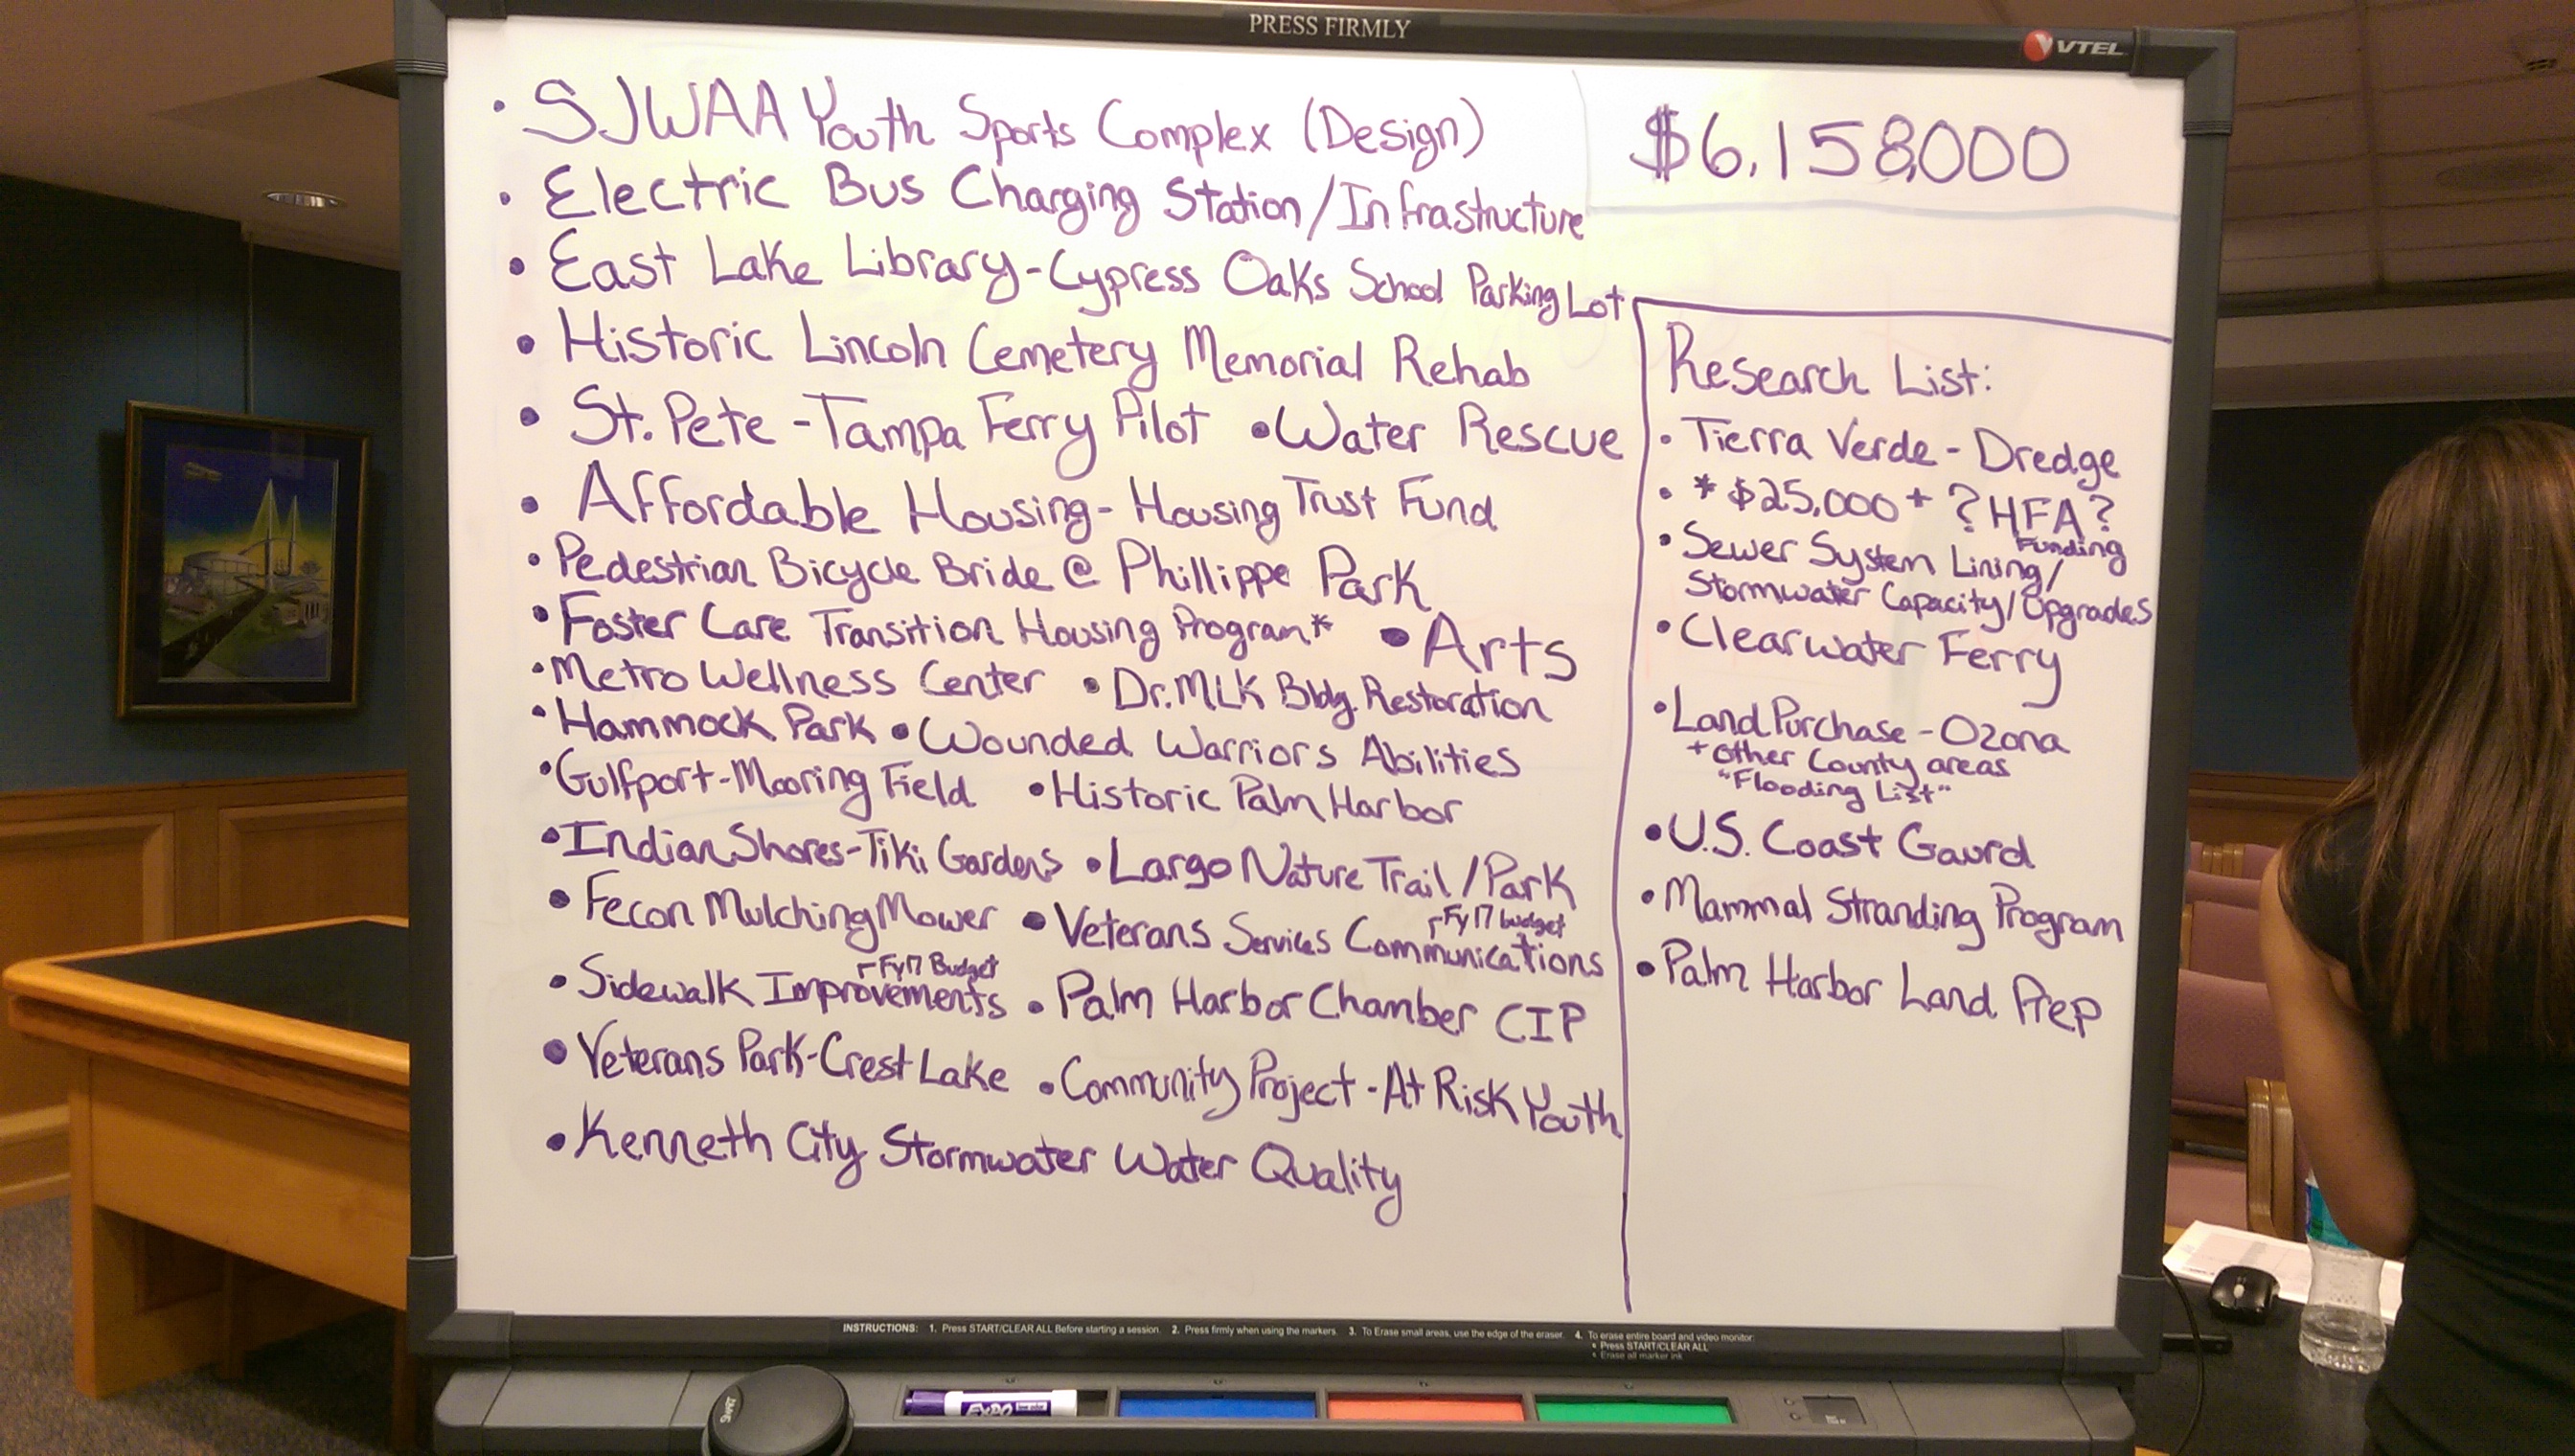 PRESS FIRMLY
VTEL
• SJWAA Youth Sports Complex (Design)
• Electric Bus Charging Station/Infrastructure
• East Lake Library-Cypress Oaks School Parking Lot
• Historic Lincoln Cemetery Memorial Rehab
• St. Pete - Tampa Ferry Pilot • Water Rescue
• Affordable Housing - Housing Trust Fund
• Pedestrian Bicycle Bride @ Phillippe Park
• Foster Care Transition Housing Program* • Arts
• Metro Wellness Center • Dr. MLK Bldg. Restoration
• Hammock Park • Wounded Warriors Abilities
• Gulfport-Mooring Field • Historic Palm Harbor
• Indian Shores-Tiki Gardens • Largo Nature Trail/Park
• Fecon Mulching Mower • Veterans Services Communications
Fy17 budget
• Sidewalk Improvements • Palm Harbor Chamber CIP
Fy17 Budget
• Veterans Park-Crest Lake • Community Project - At Risk Youth
• Kenneth City Stormwater Water Quality
$6,158,000
Research List:
• Tierra Verde - Dredge
• * $25,000 + ? HFA?
Funding
• Sewer System Lining/
Stormwater Capacity/Upgrades
• Clearwater Ferry
• Land Purchase - Ozona
+ other County areas
"Flooding List"
• U.S. Coast Gaurd
• Mammal Stranding Program
• Palm Harbor Land Prep
INSTRUCTIONS: 1. Press START/CLEAR ALL Before starting a session. 2. Press firmly when using the markers. 3. To Erase small areas, use the edge of the eraser. 4. To erase entire board and video monitor:
• Press START/CLEAR ALL
• Erase all marker ink
SMART
EXPO